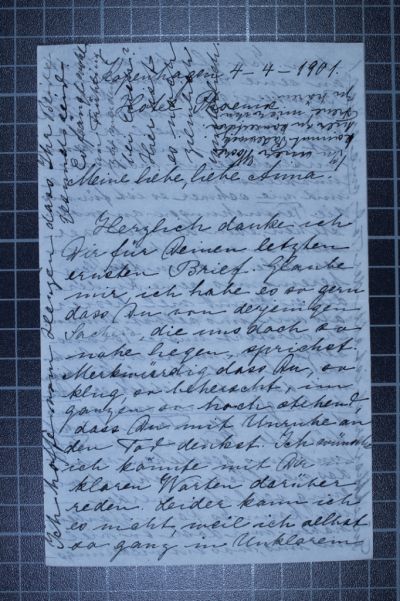 Kopenhagen 4-4-1901.
Hotel Phoenix
Meine liebe, liebe Anna.
Herzlich danke ich
Dir für Deinen letzten
ernsten Brief. Glaube
mir, ich habe es so gern
dass Du von derjenigen
Sache, die uns doch so
nahe liegen, sprichst.
Merkwürdig dass Du, so
klug, so beherrscht, im
ganzen so hoch stehend,
dass Du mit Unruhe an
den Tod denkst. Ich wünschte
ich könnte mit Dir
klaren Worten darüber
reden. Leider kann ich
es nicht, weil ich selbst
so ganz im Unklaren
Ich hoffe von Herzen dass Ihr